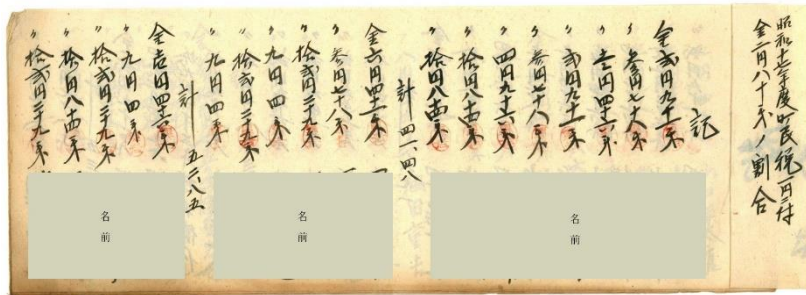 町民税一円ニ付
金二円八十銭ノ割合
記
金弐円九十一銭
〃参円七十八銭
〃壱円四十六銭
〃弐円九十一銭
〃参円七十八銭
〃四円九十六銭
〃拾円八十四銭
〃拾円八十四銭
計 四一、四八
金六円四十一銭
〃参円七十八銭
〃拾弐円二十九銭
〃九円四銭
〃拾弐円二十九銭
〃九円四銭
計 五二、八五
金壱円四十六銭
〃九円四銭
〃拾弐円二十九銭
〃拾円八十四銭
〃拾弐円二十九銭
名前
名前
名前